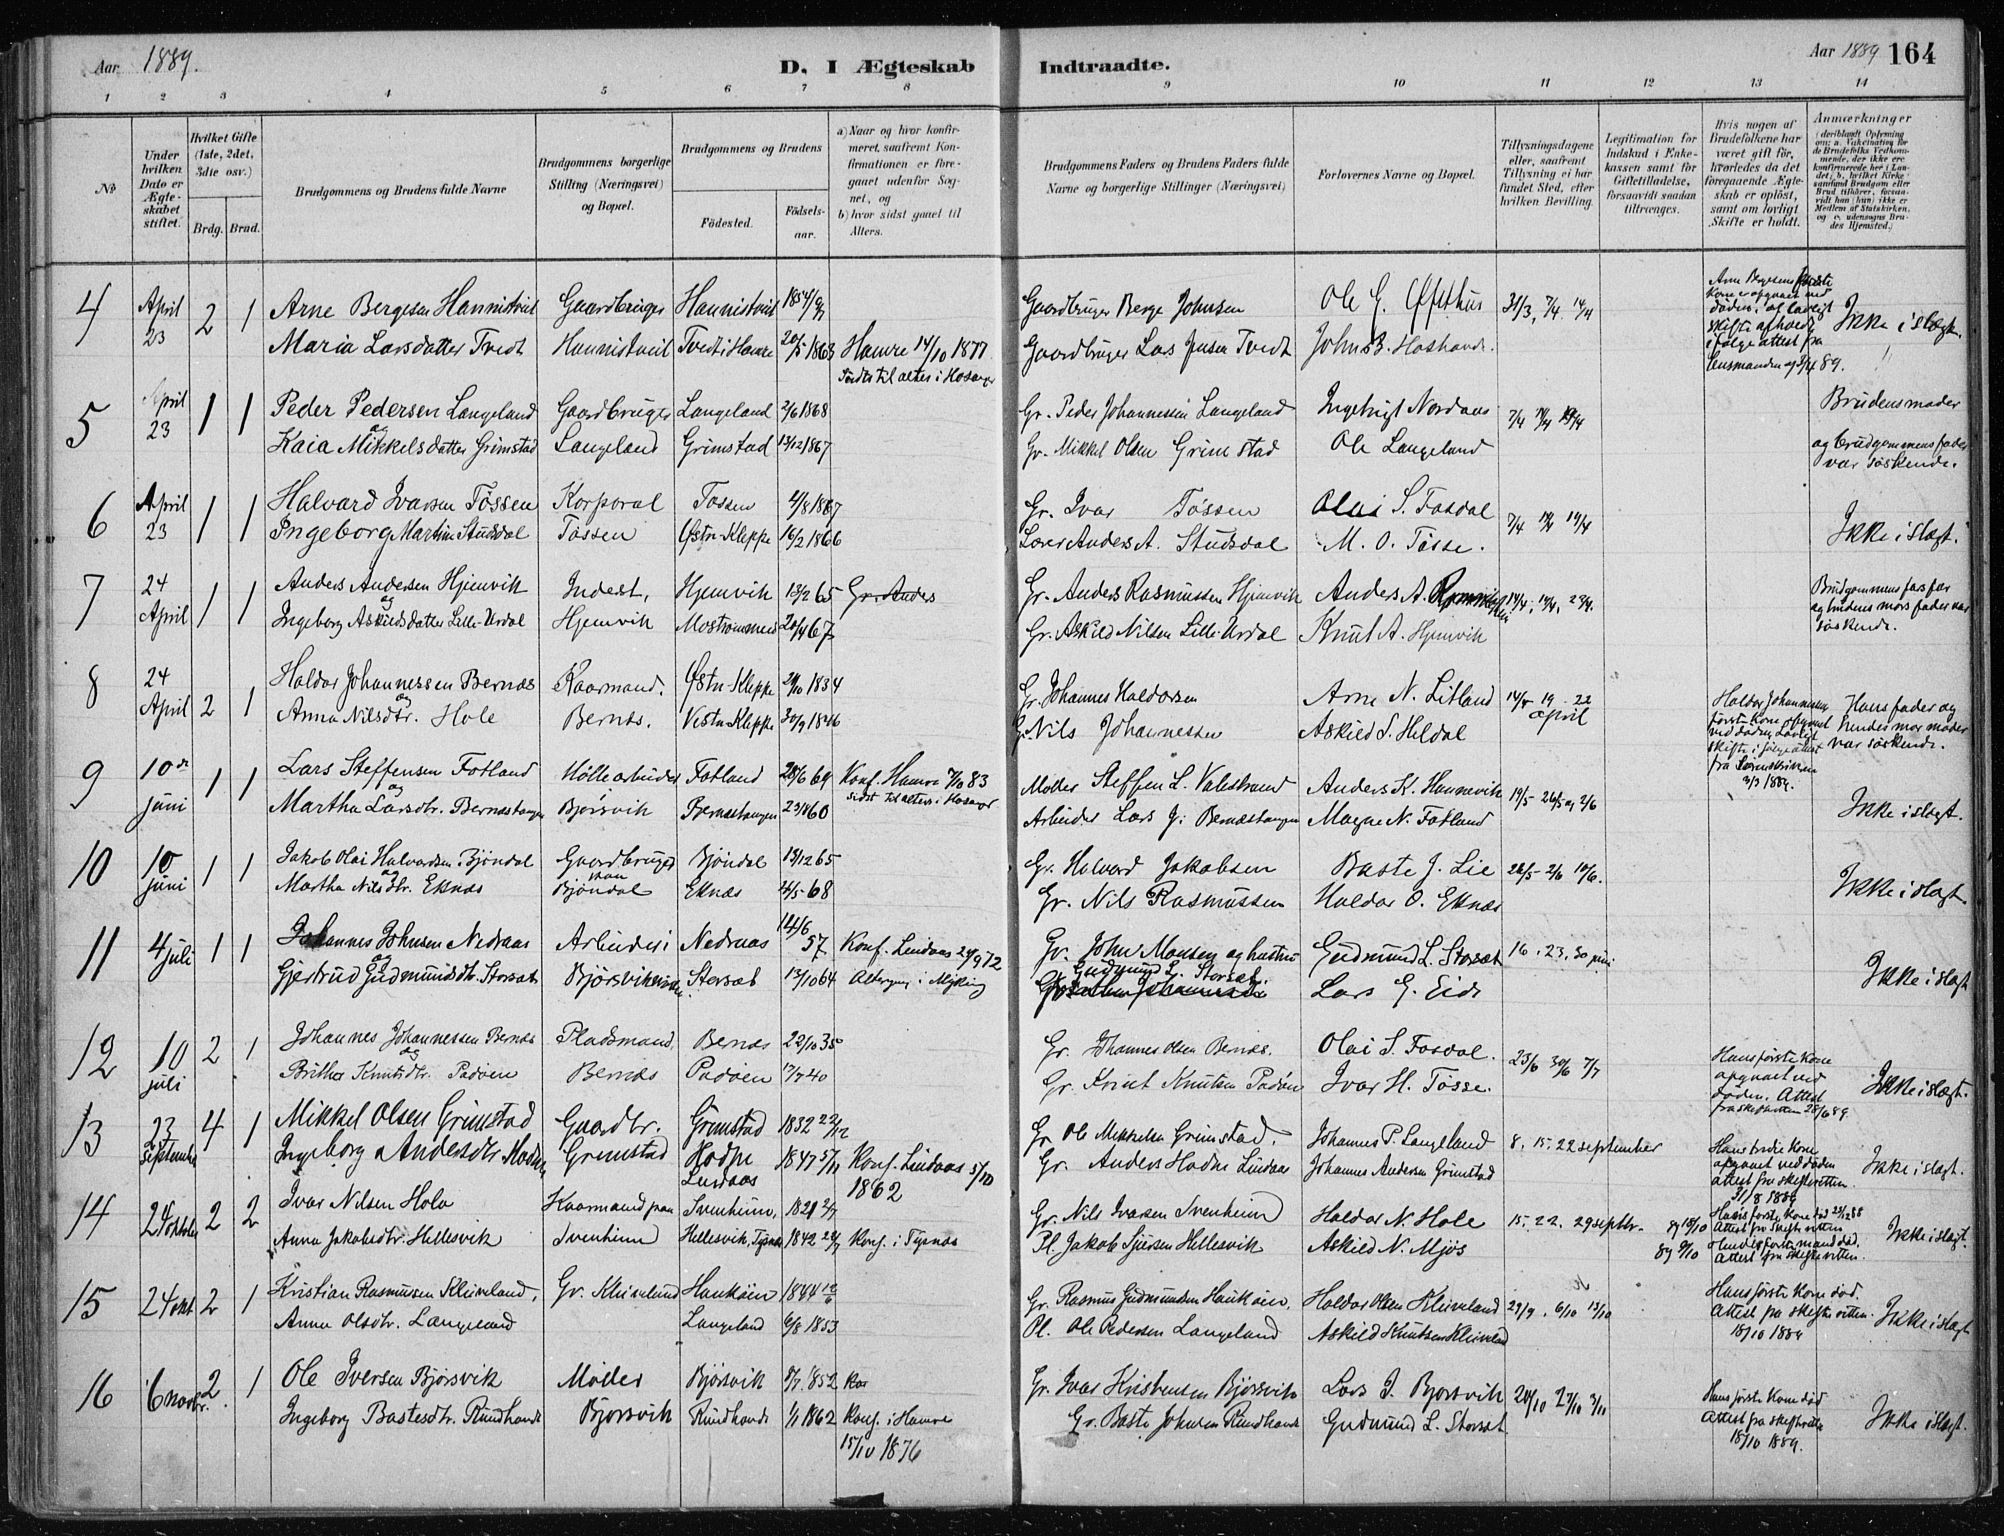 Aar 1889.
D. I Ægteskab Indtraadte.
Aar 1889 164
1 2 3 4 5 6 7 8 9 10 11 12 13 14
No
Under hvilken Dato er Ægteskabet stiftet.
Hvilket Gifte (1ste, 2det, 3die osv.)
Brdg. Brud.
Brudgommens og Brudens fulde Navne
Brudgommens borgerlige Stilling (Næringsvei) og Bopæl.
Brudgommens og Brudens
Fødested.
Fødselsaar.
a) Naar og hvor konfirmeret, saafremt Konfirmationen er foregaaet udenfor Sognet, og
b) hvor sidst gaaet til Alters.
Brudgommens Faders og Brudens Faders fulde Navne og borgerlige Stillinger (Næringsvei)
Forlovernes Navne og Bopæl.
Tillysningsdagene eller, saafremt Tillysning ei har fundet Sted, efter hvilken Bevilling.
Legitimation for Indskud i Enkekassen samt for Giftetilladelse, forsaavidt saadan tiltrænges.
Hvis nogen af Brudefolkene har været gift før, hvorledes da det foregaaende Ægteskab er opløst, samt om lovligt Skifte er holdt.
Anmærkninger
4 April 23 2 1 Arne Bergesen Hannistveit Gaardbruger Hannistveit 1854 Gaardbruger Berge Johnsen Ole G. Øfsthus 31/3, 7/4 14/4
Maria Larsdatter Tvedt Hannistveit Tvedt i Hamre 20/5 1863 Hamre 14/10 1877 Gaardbruger Lars Jensen Tvedt John B. Ikke i slægt.
sidst til alters i Hosanger
5 April 23 1 1 Peder Pedersen Langeland Gaardbruger Langeland 2/6 1868 Gr. Peder Johannessen Langeland Ingebrigt Nordaas 7/4 14/4 Brudens moder
og Kaia Mikkelsdatter Grimstad Langeland Grimstad 13/12 1867 Gr. Mikkel Olsen Grimstad Ole Langeland og brudgommens fader var søskende.
6 April 23 1 1 Halvard Ivarsen Tøssen Korporal Tøssen 4/8 1867 Gr. Ivar Tøssen Olai S. Fosdal 7/4 14/4
Ingeborg Martine Studsdal Tøssen Østn-Kleppe 16/2 1866 Lærer Anders A. Studsdal M. O. Tøsse. Ikke i slægt.
7 24 April 1 1 Anders Andersen Hjemvik Inderst, Hjemvik 13/2 65 Gr. Anders Gr. Anders Rasmussen Hjemvik Anders A. 14/4, 19/4, 22/4. Brudgommens farfar
og Ingeborg Askildsdatter Lille-Urdal Hjemvik Mostrømmen 20/4 67 Gr. Askild Nilsen Lille-Urdal Knut A. Hjemvik og brudens mors fader var søskende.
8 24 April 2 1 Haldor Johannessen Bernæs Kaarmand. Østn-Kleppe 29/10 1834 Gr. Johannes Haldorsen Arne N. Litland 14/4 19 . 22 april Haldor Johannessens første kone afgaaet ved døden, lovligt skifte i følge attest fra
og Anna Nilsdtr. Hole Bernæs. Vestn-Kleppe 30/9 1846 Gr. Nils Johannessen Askild S. Heldal Hans fader og hendes mor moder var søskende.
3/3 1889.
9 10de juni 1 1 Lars Steffensen Fotland Møllearbeider Fotland 28/6 69 Konf. Hamre 7/10 83 Møller Steffen L. Valestrand Anders K. Hannevik 19/5 - 26/5 og 2/6
og Martha Larsdtr. Bernæstangen Bjørsvik Bernæstangen 60 sidst til alters i Hosanger Arbeider Lars J. Bernæstangen Magne N. Fotland Ikke i slægt.
10 10 juni 1 1 Jakob Olai Halvardsen Bjøndal Gaardbruger Bjøndal 13/12 65 Gr. Halvard Jakobsen Baste J. Lie 26/5 - 2/6 10/6.
og Martha Nilsdtr. Eknæs paa Bjøndal Eknæs 68 Gr. Nils Rasmussen Haldor O. Eknæs Ikke i slægt.
11 4 juli 1 1 Johannes Johnsen Nedraas Arbeider i Nedraas 14/6 57. Konf. Lindaas 24/9 72 Gr. John Monsen og hustru Gudmund L. Storsæt 16 . 23. 30 juni
og Gjertrud Gudmundsdtr. Storsæt Bjørsviken Storsæt 13/10 64 Altergang i Myking Gudmund L. Storsæt. Lars G. Eide Ikke i slægt
12 10 juli 2 1 Johannes Johannessen Bernæs Pladsmand, Bernæs 22/10 35 Gr. Johannes Olsen Bernæs. Olai S. Fosdal. 23/6 30/6 7/7 Hans første kone afgaaet ved døden. Attest fra skifteretten 28/6 89.
og Britha Knutsdtr. Padøen Bernæs Padøen 17/7 40 Gr. Knut Knutsen Padøen Ivar H. Tøsse. Ikke i slægt.
13 23 September 4 1 Mikkel Olsen Grimstad Gaardbr. Grimstad 1832 22/12 Gr. Ole Mikkelsen Grimstad. Johannes P. Langeland 8. 15. 22 september Hans tredie kone afgaaet ved døden attest fra skifteretten 31/8 1889
Ingeborg Andersdtr Grimstad Lindaas 1847 5/11 Konf. Lindaas 5/10 1862 Gr. Anders Lindaas Johannes Andersen Grimstad Ikke i slægt.
14 2 2 Ivar Nilsen Hole Kaarmand paa Ivenheim, 1821 Gr. Nils Ivarsen Ivenheim Haldor N. Hole 15. 22. 29 septbr. Hans første kone død Attest fra skifteretten
Anna Jakobsdtr. Hellesvik Ivenheim Hellesvik, Tysnæs 1842 Konf. i Tysnæs Pl. Jakob Hellesvik Askild N. Mjøs Hendes første mand død. Attest fra skifteretten. Ikke i slægt.
15 24 okt. 2 1 Kristian Rasmussen Kleiveland, Gr. Kleiveland Haukøen 1844 Gr. Rasmus Gudmundsen Haukøen, Haldor Olsen Kleiveland 29/9 . 6/10 13/10 Hans første kone død. Attest fra skifteretten. 18/10 1889
Anna Olsdtr. Langeland Langeland 6/8 1853 Pl. Ole Pedersen Langeland Askild Knutsen Kleiveland Ikke i slægt
16 6 novbr. 2 1 Ole Iversen Bjørsvik Møller Bjørsvik 1852 Gr. Ivar Kristensen Bjørsvik Lars J. Bjørsvik 20/10 27/10 3/11 Hans første kone død Attest fra skifteretten 18/10 1889.
Ingeborg Bastesdtr. Rundhovde Bjørsvik Rundhovde 1/1 1862 Konf. i Hamre 15/10 1876 Gr. Baste Johnsen Rundhovde Gudmund L. Storsæt Ikke i slægt.